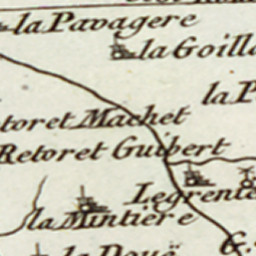 la Pavagere
la Goill
la P
toret Machet
Retoret Guibert
Legrente
la Mintiere
la Douë
G.